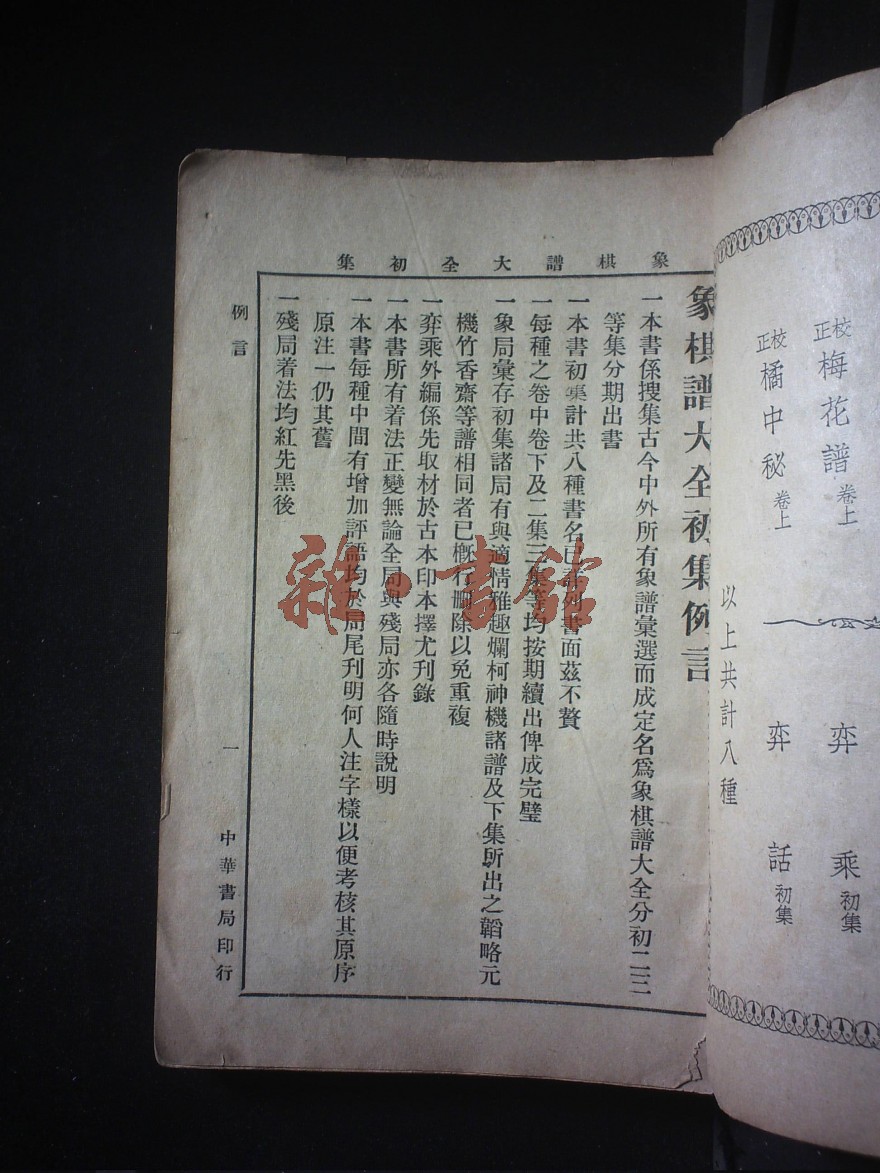 校正梅花譜卷上
弈乘初集
校正橘中秘卷上
弈話初集
以上共計八種
象棋譜大全初集
象棋譜大全初集例言
一本書係搜集古今中外所有象譜彙選而成定名爲象棋譜大全分初二三
等集分期出書
一本書初集計共八種書名已詳列書面茲不贅
一每種之卷中卷下及二集三集等均按期續出俾成完璧
一象局彙存初集諸局有與適情雅趣爛柯神機諸譜及下集所出之韜略元
機竹香齋等譜相同者已概行删除以免重複
一弈乘外編係先取材於古本印本擇尤刊錄
一本書所有着法正變無論全局與殘局亦各隨時說明
一本書每種中間有增加評語均於局尾刋明何人注字樣以便考核其原序
原注一仍其舊
一殘局着法均紅先黑後
例言
一
中華書局印行
雜书館